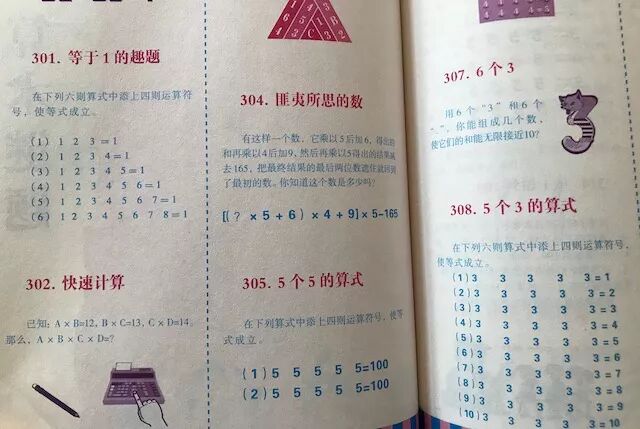 301. 等于 1 的趣题
在下列六则算式中添上四则运算符
号,使等式成立。
(1) 1 2 3 = 1
(2) 1 2 3 4 = 1
(3) 1 2 3 4 5 = 1
(4) 1 2 3 4 5 6 = 1
(5) 1 2 3 4 5 6 7 = 1
(6) 1 2 3 4 5 6 7 8 = 1
302. 快速计算
已知: A × B=12, B × C=13, C × D=14。
那么, A × B × C × D=?
304. 匪夷所思的数
有这样一个数,它乘以 5 后加 6,得出的
和再乘以 4 后加 9,然后再乘以 5 得出的结果减
去 165,把最终结果的最后两位数遮住就回到
了最初的数。你知道这个数是多少吗?
[( ? × 5 + 6 ) × 4 + 9] × 5-165
305. 5 个 5 的算式
在下列算式中添上四则运算符号,使等
式成立。
(1) 5 5 5 5 5=100
(2) 5 5 5 5 5=100
307. 6 个 3
用 6 个 “3” 和 6 个
“.”,你能组成几个数,
使它们的和能无限接近10?
308. 5 个 3 的算式
在下列六则算式中添上四则运算符号,
使等式成立。
(1) 3 3 3 3 3 = 1
(2) 3 3 3 3 3 = 2
(3) 3 3 3 3 3 = 3
(4) 3 3 3 3 3 = 4
(5) 3 3 3 3 3 = 5
(6) 3 3 3 3 3 = 6
(7) 3 3 3 3 3 = 7
(8) 3 3 3 3 3 = 8
(9) 3 3 3 3 3 = 9
(10) 3 3 3 3 3 = 10